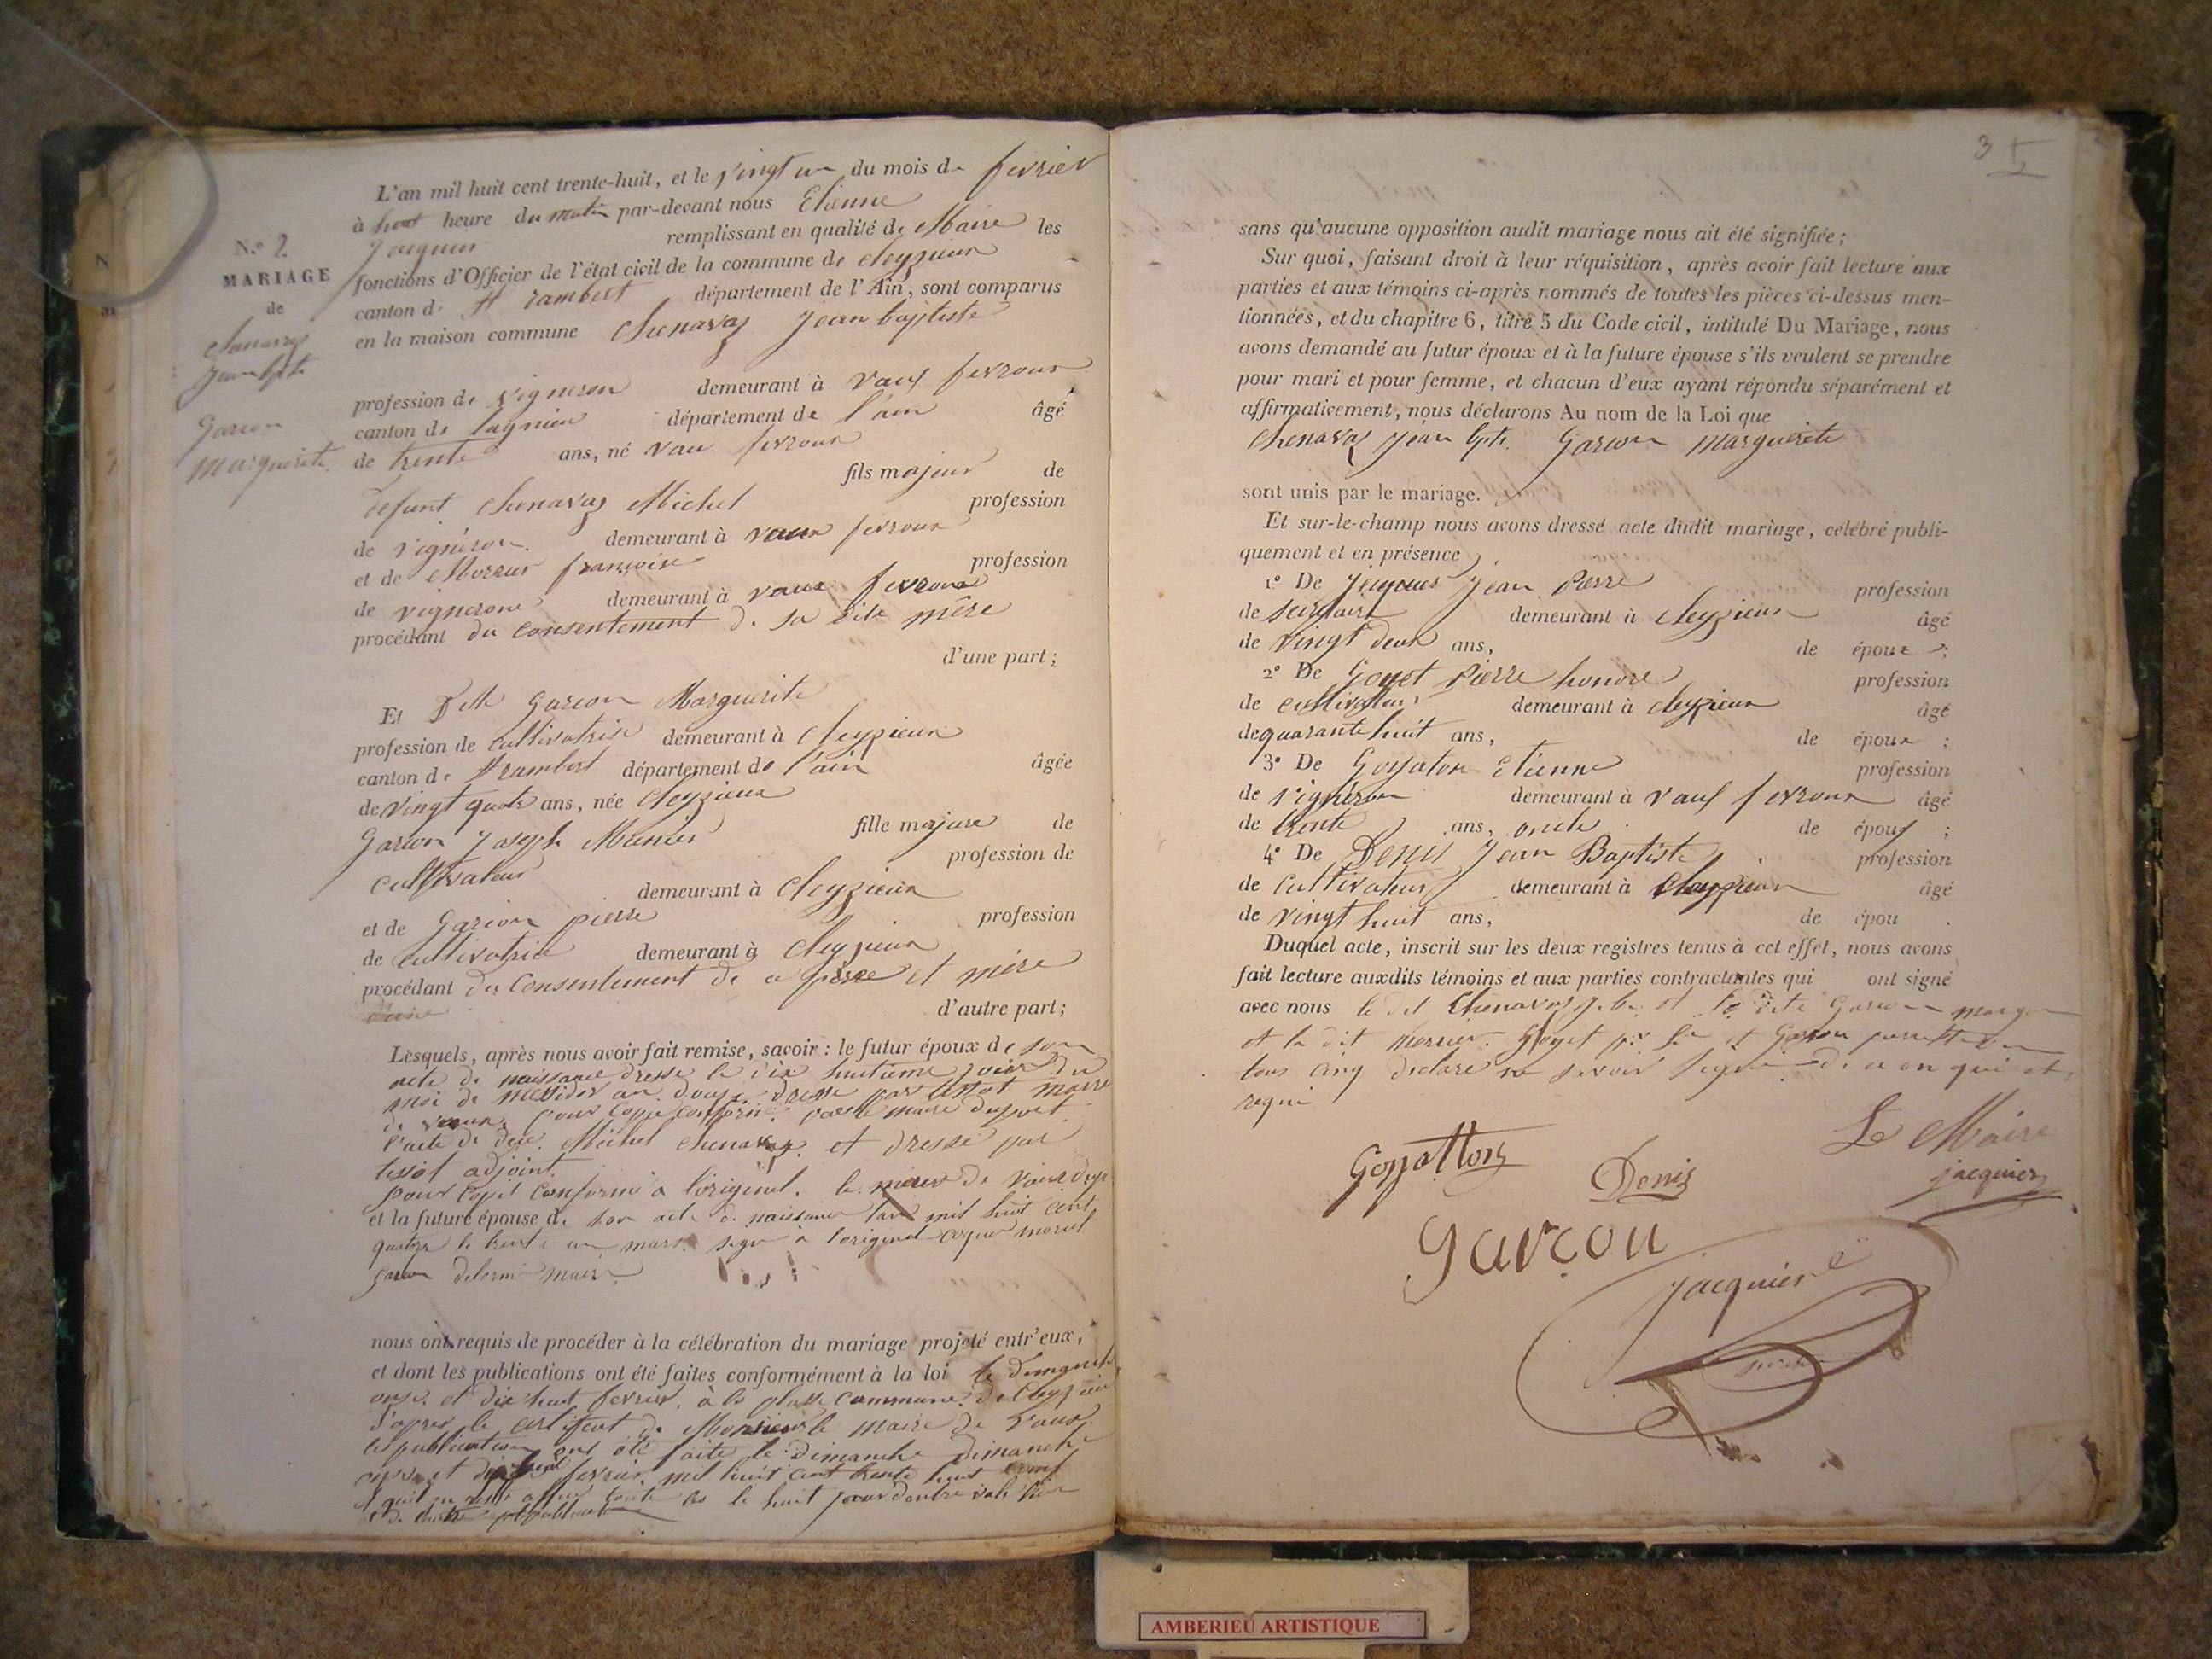 L'an mil huit cent trente-huit, et le vingt un du mois de fevrier
à huit heure du matin par-devant nous Etienne
Jacquier remplissant en qualité de Maire les
N.º 2
MARIAGE
de
Chenavaz
Jean bpte
Garcon
Marguerite
fonctions d'Officier de l'état civil de la commune de Cleyzieux
canton de St rambert département de l'Ain, sont comparus
en la maison commune Chenavaz Jean baptiste
profession de vigneron demeurant à vaux fevroux
canton de lagnieu département de l'ain âgé
de trente ans, né vau fevroux
fils majeur de
defunt Chenavaz Michel profession
de vigneron demeurant à vaux fevroux
et de françoise profession
de vignerone demeurant à vaux fevroux
procédant du consentement de sa dite mère
d'une part;
Et Delle Garcon Marguerite
profession de cultivatrise demeurant à Cleyzieux
canton de St rambert département de l'ain âgée
de vingt quatre ans, née Cleyzieux
fille majeure de
Garcon Joseph Meunier profession de
cultivateur demeurant à Cleyzieux
et de Garcon pierre profession
de cultivatrice demeurant à Cleyzieux
procédant du Consentement de père et mère
d'autre part;
Lesquels, après nous avoir fait remise, savoir: le futur époux de son
acte de naissance dressé le dix huitieme jour du
moi de messidor an douze dressé par maire
de vaux, pour copie conforme
l'acte de Michel Chenavaz et dressé par
tissot adjoint.
pour copie conforme a l'original. le de vaux
et la future épouse de son acte de naissance l'an mil huit cent
quatorze le trente un mars signé a l'original
Garcon maire
nous ont requis de procéder à la célébration du mariage projeté entr'eux,
et dont les publications ont été faites conformément à la loi le dimanche
onze et dix huit fevrier à la commune de Cleyzieux
d'apres le certificat de Monsieur le maire de vaux
les publication ont été faite le Dimanche dimanche
onze et dix huit fevrier mil huit cent trente huit
le huit
3 5
sans qu'aucune opposition audit mariage nous ait été signifiée;
Sur quoi, faisant droit à leur réquisition, après avoir fait lecture aux
parties et aux témoins ci-après nommés de toutes les pièces ci-dessus men-
tionnées, et du chapitre 6, titre 5 du Code civil, intitulé Du Mariage, nous
avons demandé au futur époux et à la future épouse s'ils veulent se prendre
pour mari et pour femme, et chacun d'eux ayant répondu séparément et
affirmativement, nous déclarons Au nom de la Loi que
Chenavaz Jean bpte. Garcon Marguerite
sont unis par le mariage.
Et sur-le-champ nous avons dressé acte dudit mariage, célébré publi-
quement et en présence
1º De Jacquier Jean Pierre profession
de demeurant à Cleyzieux âgé
de vingt deux ans, de époux;
2º De Goyet Pierre honoré profession
de cultivateur demeurant à Cleyzieux âgé
de quarante huit ans, de époux;
3º De Goyaton Etienne profession
de vigneron demeurant à vaux fevroux âgé
de trente ans, oncle de époux;
4º De Denis Jean Baptiste profession
de Cultivateur demeurant à Cleyzieux âgé
de vingt huit ans, de épou .
Duquel acte, inscrit sur les deux registres tenus à cet effet, nous avons
fait lecture auxdits témoins et aux parties contractantes qui ont signé
avec nous le dit Chenavaz j. b. et la dite Garcon
et la dit Goyet et Garcon
tous cinq declare ne savoir signé de ce
requi
Goyatton
Denis
Le Maire
jacquier
Garcon
jacquier
AMBERIEU ARTISTIQUE